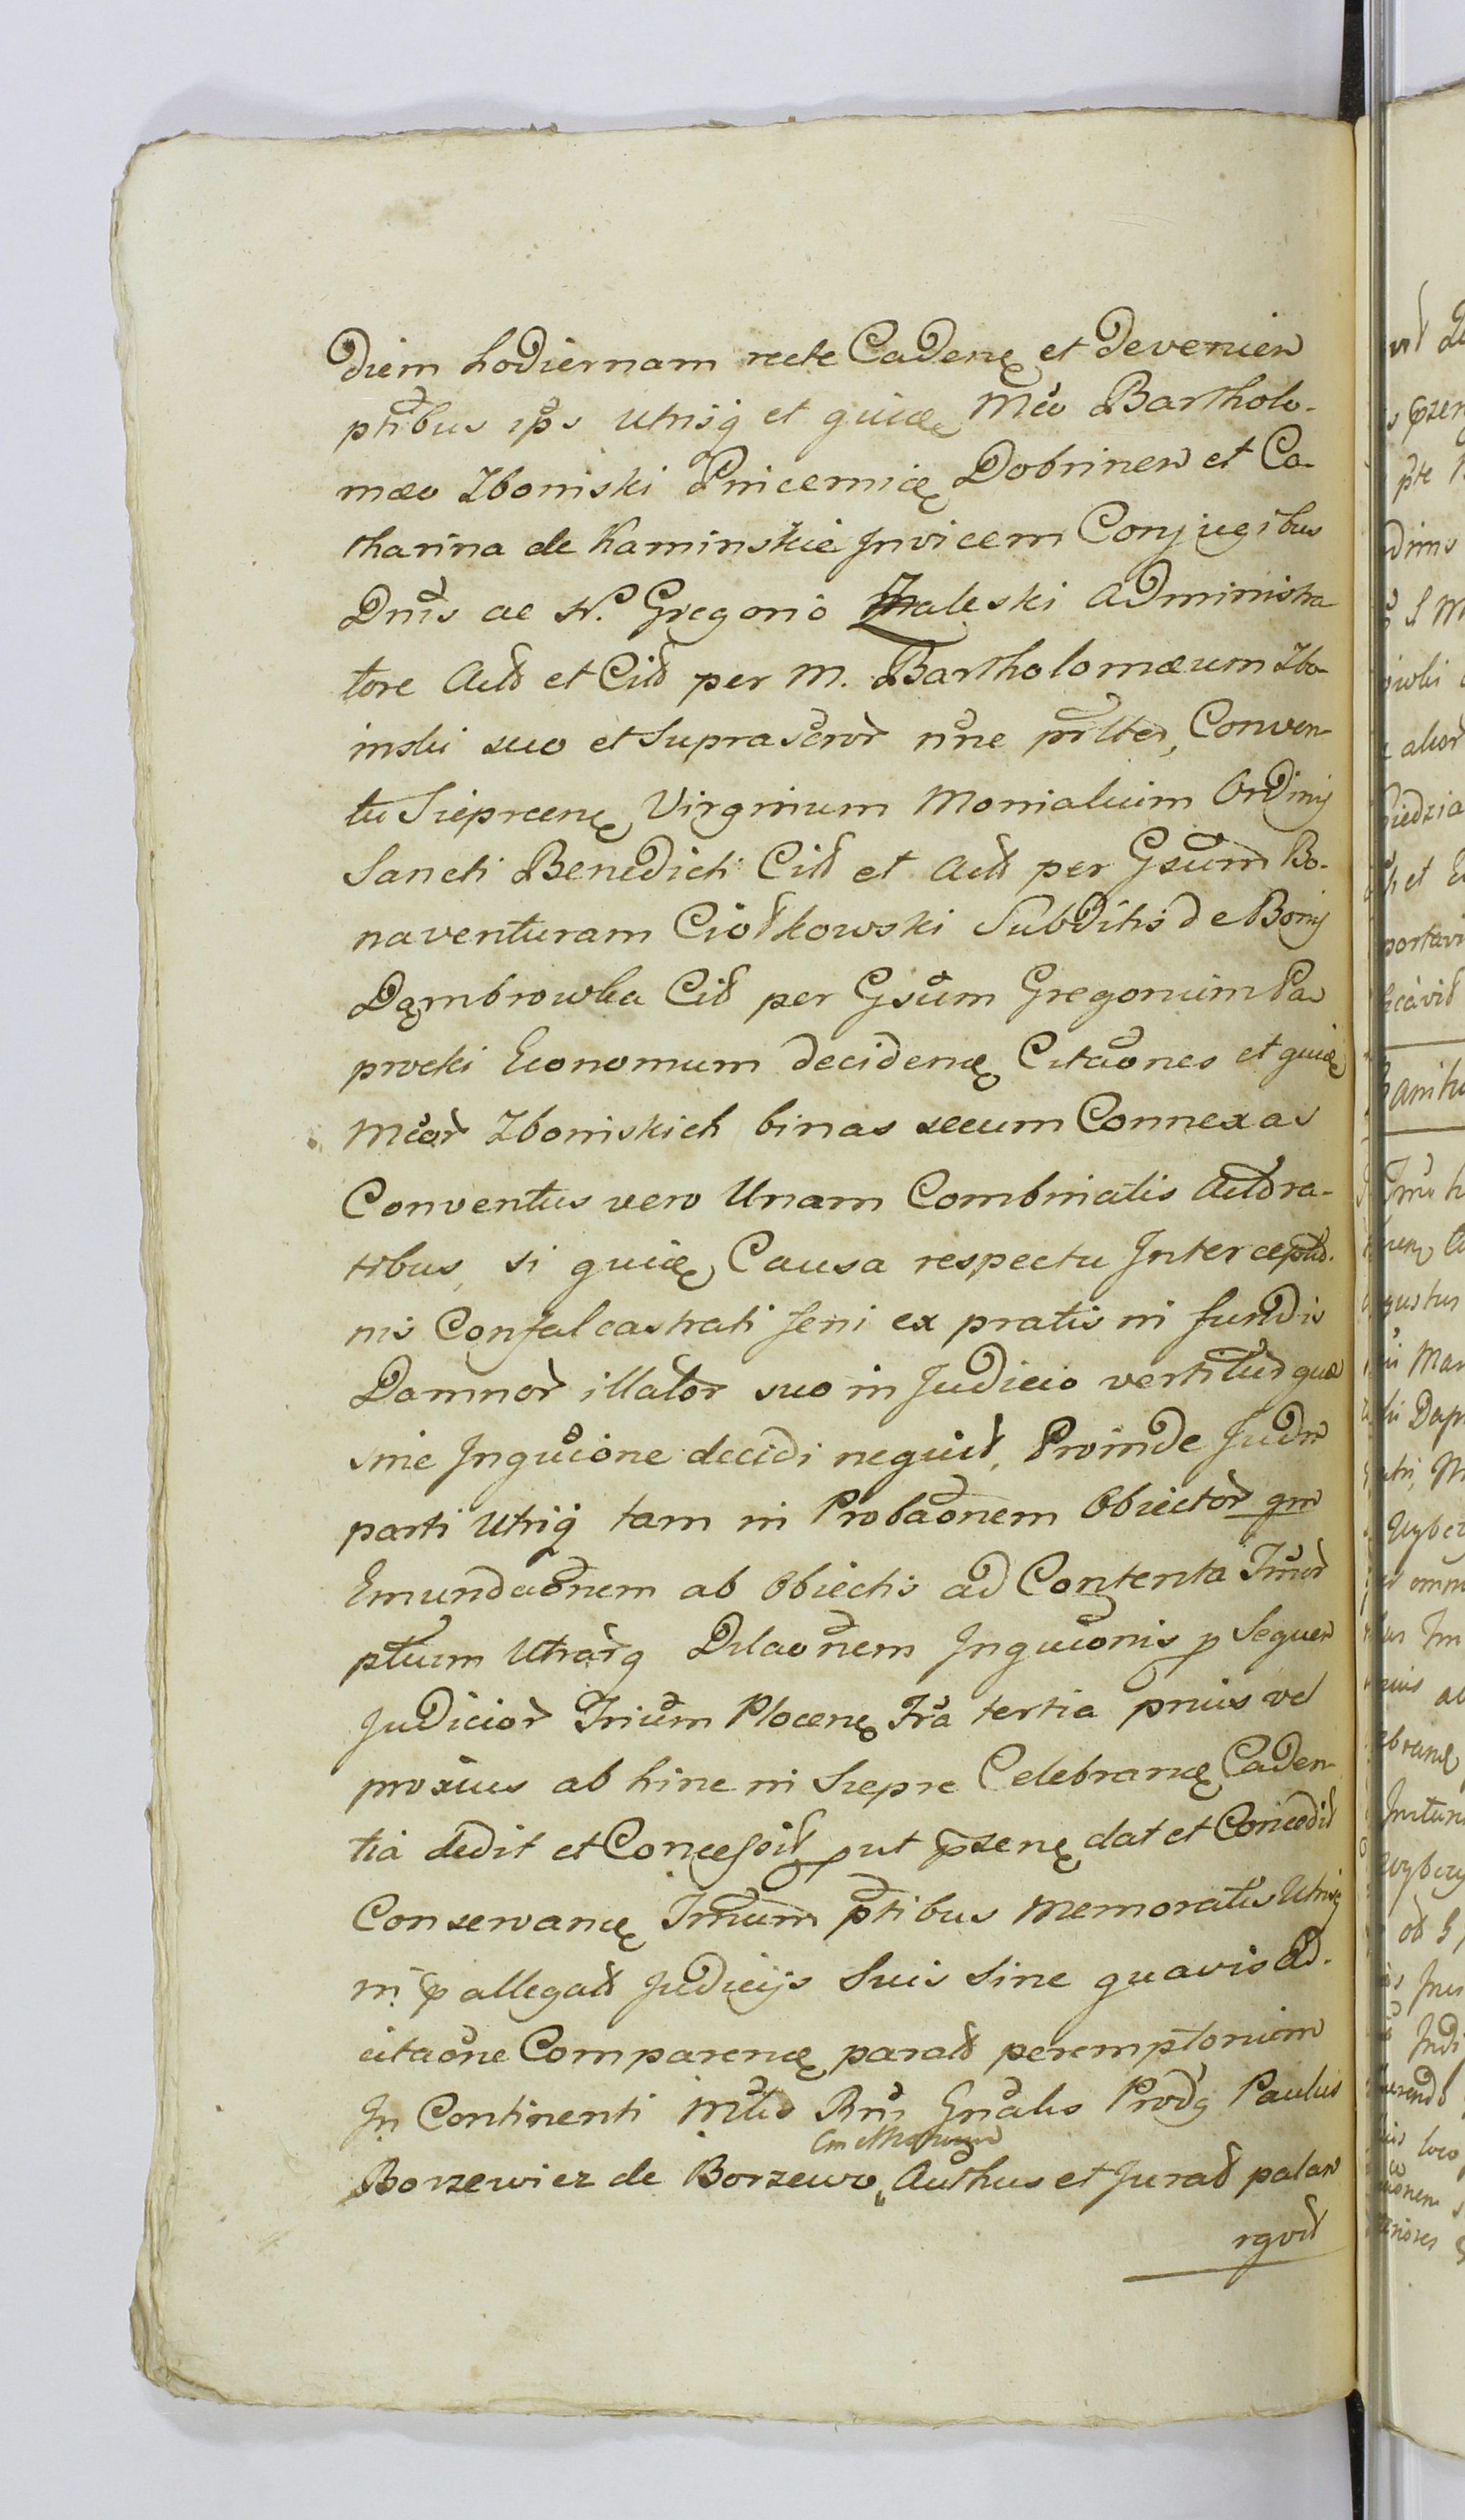 Diem hodiernam recte Caden et devenien
ptibus ips utrisq et quidem Mco Bartholo-
mæo Zboinski Pincernić Dobrinen et Ca-
tharina de Kaminskie Invicem Conjugibus
Dnis ac N. Gregorio Zaleski Administra
tore Actt et Citt per M. Bartholomæum Zbo-
inski suo et Suprascror nne prltter, Conven-
tu Sieprcen Virginum Monialium Ordinis
Sancti Benedicti Citt et Actt per Gsum Bo-
naventuram Ciołkowski Subditis de Bonis
Dąmbrowka Citt per Gsum Gregorium Pa
procki Economum deciden Citaones et quid
Mcor Zboinskich binas secum Connexas
Conventus vero Unam Combinatis Actora-
tibus, si quid Causa respectu Interceptio-
nis Confalcastrati feni ex pratis in fundis
Damnor illator suo in Judicio vertitur quæ
sine Inquicione decidi nequit, Proinde Judm
parti utriq tam in Probaonem Obiector qm
Emundaonem ab Obiectis ad Contenta Imor
ptium Utrarq Dilaonem Inquionis p Sequen
Judicior Trium Plocen Fra tertia prius vel
proxius ab hinc in Siepre Celebran Caden-
tia dedit et Concessit put przen dat et Concedit
Conservan Tmum ptibus memoratis Utrisq
in p allegatt Judicijs Suis Sine quavis Ad-
citaone Comparen paratt peremptorium
In Continenti Mtts Rnis Gnalis Prodq Paulus
Borzewicz de Borzewo Authus et Juratt palan
rgvit